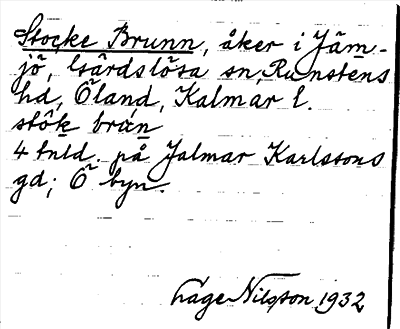 Stocke Brunn, åker i Jäm-
jö, Gärdslösa sn, Runstens
hd, Öland, Kalmar l.
stôk brán
4 tnld. på Jalmar Karlssons
gd; Ö byn.
Låge Nilsson 1932